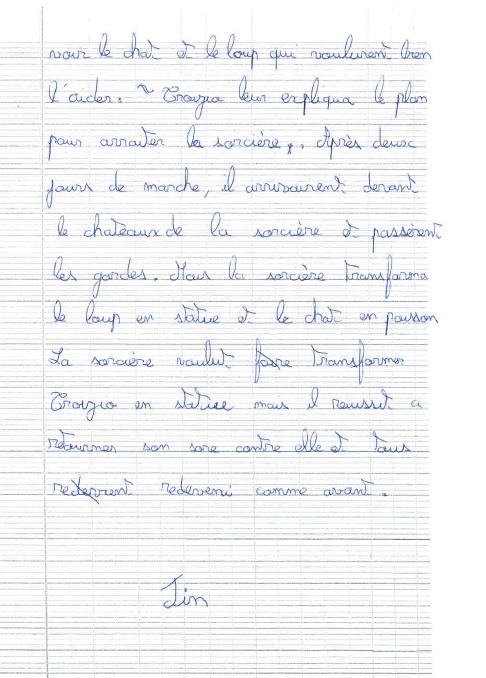 voir le chat et le loup qui voulurent bien
l'aider. Croizia leur expliqua le plan
pour arraiter la sorcière. Après deux
jours de marche, il arrivairent devant
le chateaux de la sorcière et passèrent
les gardes. Mais la sorcière transforma
le loup en statue et le chat en poisson
La sorcière voulut transformer
Croizia en statue mais il reussit a
retourner son sore contre elle et tous
redeveni comme avant.
Fin